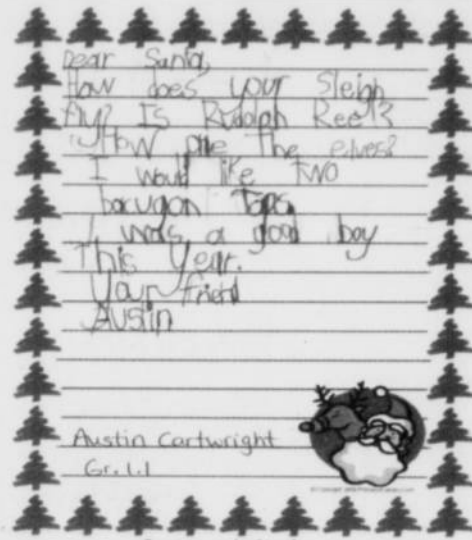 Dear Santa,
How does your Sleigh
fly? Is Rudolph Reel?
How are The elves?
I would like Two
bacugon Tops,
I was a good boy
This year.
Your friend
Austin
Austin Cartwright
Gr. 1.1